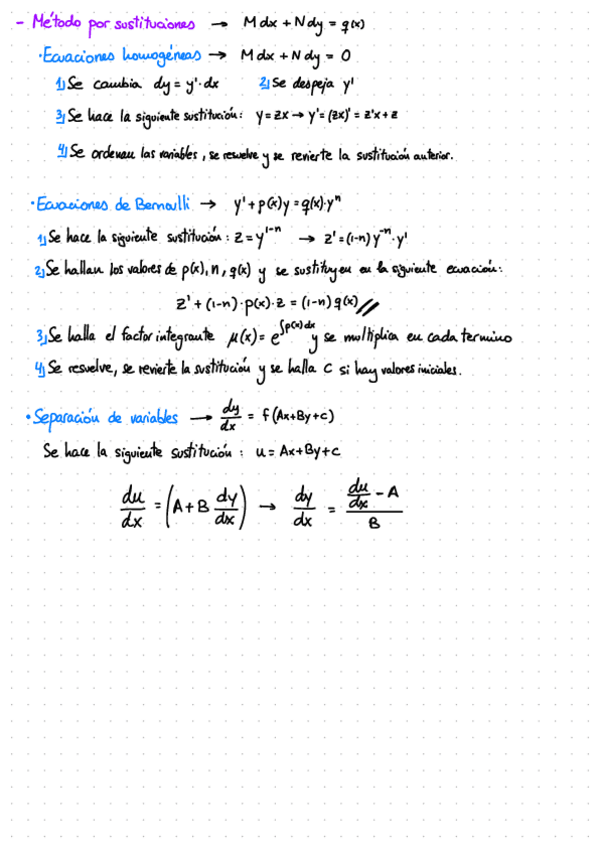 - Método por sustituciones → M dx + N dy = q(x)
· Ecuaciones homogéneas → M dx + N dy = 0
1) Se cambia dy = y'· dx 2) Se despeja y'
3) Se hace la siguiente sustitución: y = zx → y' = (zx)' = z'x + z
4) Se ordenan las variables, se resuelve y se revierte la sustitución anterior.
· Ecuaciones de Bernoulli → y' + p(x)y = q(x)·y^n
1) Se hace la siguiente sustitución: z = y^{1-n} → z' = (1-n) y^{-n}· y'
2) Se hallan los valores de p(x), n, q(x) y se sustituyen en la siguiente ecuación:
z' + (1-n)·p(x)·z = (1-n) q(x)//
3) Se halla el factor integrante μ(x) = e^{∫p(x)dx} y se multiplica en cada termino
4) Se resuelve, se revierte la sustitución y se halla C si hay valores iniciales.
· Separación de variables → dy/dx = f(Ax+By+c)
Se hace la siguiente sustitución: u = Ax+By+c
du/dx = (A + B dy/dx) → dy/dx = (du/dx - A)/B